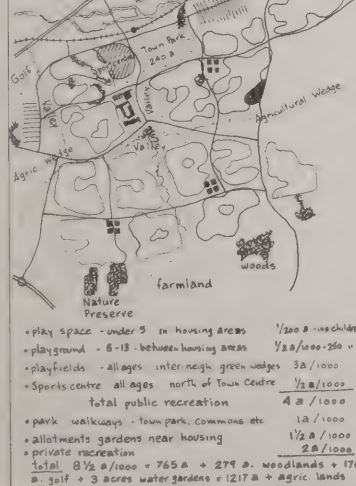 Town Park
240 a
Sports centre
Golf
Valley
Valley
Agricultural Wedge
Agric. Wedge
Valley
woods
farmland
Nature
Preserve
• play space - under 5 in housing areas 1/200 a -100 children
• playground - 6-13 - between housing areas 1/2 a/1000-250 "
• playfields - all ages inter-neigh green wedges 3a/1000
• Sports centre all ages north of Town Centre 1/2 a/1000
total public recreation 4 a /1000
• park walkways - town park, commons etc 1a /1000
• allotments gardens near housing 1 1/2 a /1000
• private recreation 2a /1000
total 8 1/2 a/1000 = 765a + 279 a. woodlands +
a. golf + 3 acres water gardens = 1217a + agric. lands